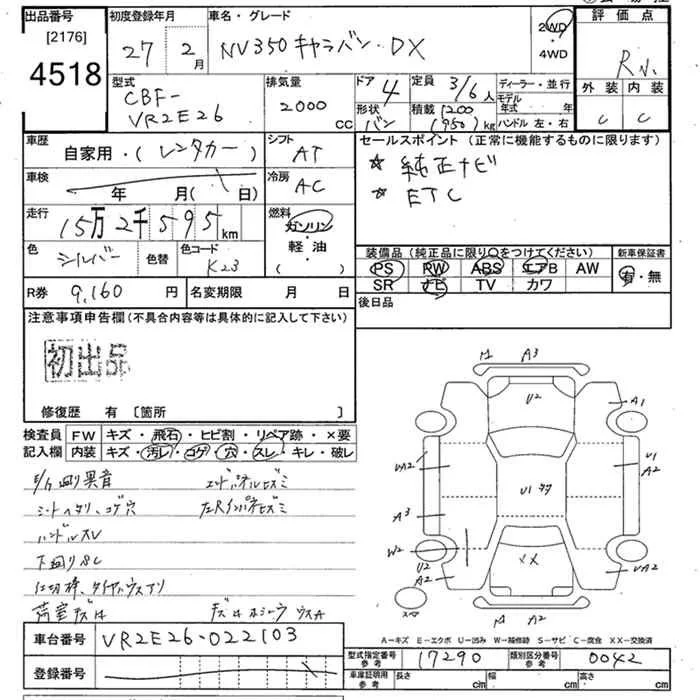 出品番号 初度登録年月 車名・グレード 評価点
[2176] 4518
27 2月 NV350 キャラバン DX
2WD・4WD
外装 内装
C C
型式 排気量 ドア 定員 ディーラー・並行
CBF-VR2E26 2000 CC 4 3/6人 モデル年式 年
形状 積載
バン 1200 (950)kg ハンドル 左・右
車歴 シフト セールスポイント (正常に機能するものに限ります)
自家用・(レンタカー) AT
☆ 純正ナビ
☆ ETC
車検 年 月(日) 冷房 AC
走行 15万2千595km 燃料 ガソリン・軽油・( )
色 シルバー 色替 色コード K23
装備品 (純正品に限り○をつけてください) 新車保証書
PS RW ABS エアB AW 有・無
SR ナビ TV カワ
R券 9,160円 名変期限 月 日
後日品
注意事項申告欄(不具合内容等は具体的に記入して下さい)
初出品
修復歴 有 〔箇所 〕
検査員 FW キズ・飛石・ヒビ割・リペア跡・×要
記入欄 内装 キズ・汚レ・コゲ・穴・スレ・キレ・破レ
シートヘタリ、コゲ穴
ハンドルスレ
下回りSC
A3
U2
A1
UA2
U1
A2
A3
W2
U2
A2
XX
UA2
A2
スペア
A-キズ E-エクボ U-凹み W-補修跡 S-サビ C-腐食 XX-交換済
車台番号 VR2E26-022103
型式指定番号 参考 17290 類別区分番号 参考 0042
登録番号
車庫証明用 参考 長さ cm 幅 cm 高さ cm